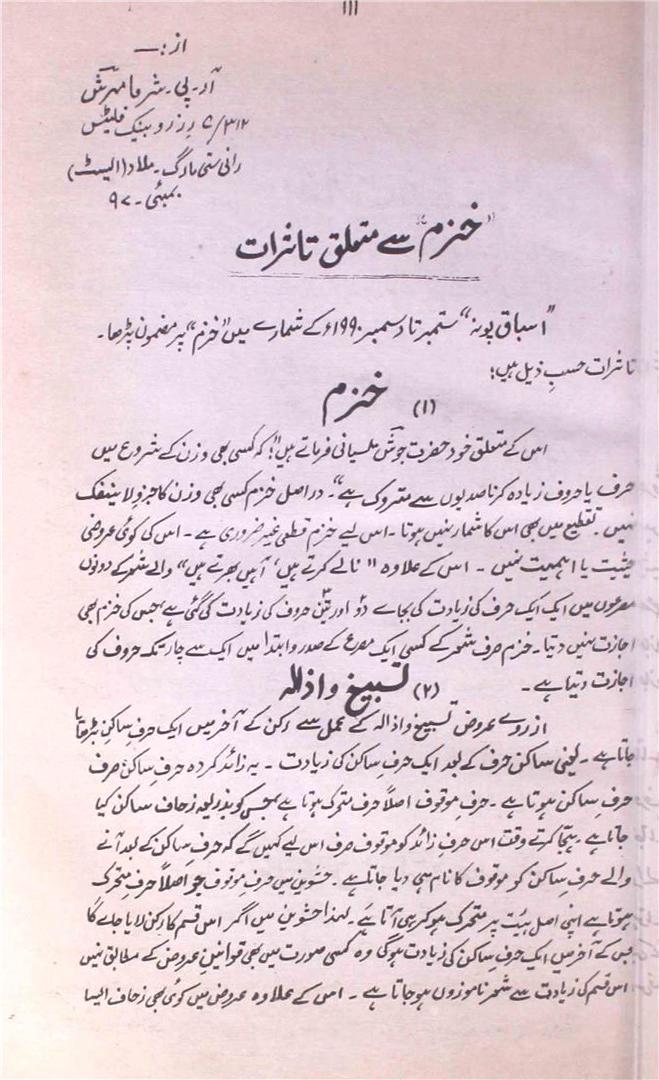 ۱۱۱
از:۔
آر۔پی۔شرما مہرش
۵/۳۱۲ رزرو بینک فلیٹس
رانی ستی مارگ۔ ملاد (الیسٹ)
بمبئی۔ ۹۷
"خزم" سے متعلق تاثرات
"اسباق پونہ" ستمبر تا دسمبر ۱۹۹۰ء کے شمارے میں "خزم" پر مضمون پڑھا۔
تاثرات حسبِ ذیل ہیں؛
(۱) خزم
اس کے متعلق خود حضرت جوش ملسیانی فرماتے ہیں "کہ کسی بھی وزن کے شروع میں
حرف یا حروف زیادہ کرنا صدیوں سے متروک ہے"۔ دراصل خزم کسی بھی وزن کا جزوِ لاینفک
نہیں۔ تقطیع میں بھی اس کا شمار نہیں ہوتا۔ اس لیے خزم قطعی غیر ضروری ہے۔ اس کی کوئی عروضی
حیثیت یا اہمیت نہیں۔ اس کے علاوہ "نالے کرتے ہیں، آہیں بھرتے ہیں" والے شعر کے دونوں
مصرعوں میں ایک ایک حرف کی زیادت کی بجائے دو اور تین حروف کی زیادت کی گئی ہے، جس کی خزم بھی
اجازت نہیں دیتا۔ خزم صرف شعر کے کسی ایک مصرع کے صدر و ابتدا میں ایک سے چار تک حروف کی
اجازت دیتا ہے۔
(۲) تسبیغ و اذالہ
از روے عروض تسبیغ و اذالہ کے عمل سے رکن کے آخر میں ایک حرفِ ساکن بڑھایا
جاتا ہے۔ یعنی ساکن حرف کے بعد ایک حرفِ ساکن کی زیادت۔ یہ زائد کردہ حرفِ ساکن صرف
حرفِ ساکن ہوتا ہے۔ حرفِ موقوف اصلاً حرف متحرک ہوتا ہے، جس کو بذریعہ زحاف ساکن کیا
جاتا ہے۔ ہجا کرتے وقت اس حرفِ زائد کو موقوف صرف اس لیے کہیں گے کہ حرفِ ساکن کے بعد آنے
والے حرفِ ساکن کو موقوف کا نام ہی دیا جاتا ہے۔ حشوین میں حرف موقوف جو اصلاً حرف متحرک
ہوتا ہے اپنی اصل ہیئت پر متحرک ہو کر ہی آتا ہے۔ لہٰذا حشوین میں اگر اس قسم کا رکن لایا جائے گا
جس کے آخر میں ایک حرفِ ساکن کی زیادت ہوگی وہ کسی صورت میں بھی قوانینِ عروض کے مطابق نہیں
اس قسم کی زیادت سے شعر ناموزوں ہو جاتا ہے۔ اس کے علاوہ عروض میں کوئی بھی زحاف ایسا